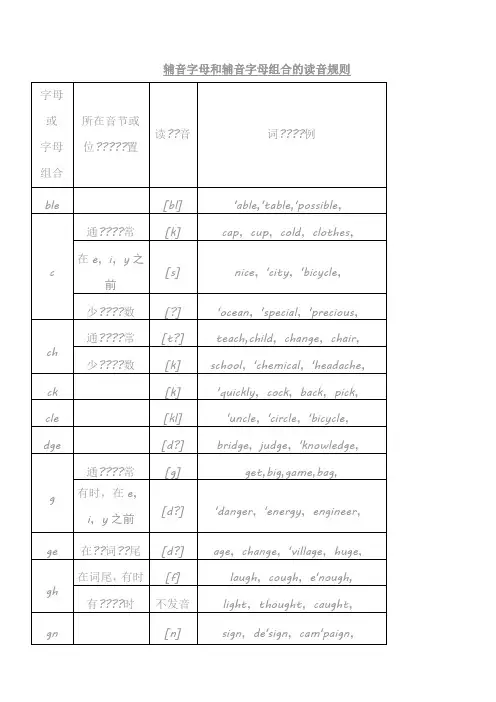 辅音字母和辅音字母组合的读音规则
字母
或
字母
组合
所在音节或
位?????置
读??音
词????例
ble [bl] 'able,'table,'possible,
c 通????常 [k] cap, cup, cold, clothes,
在 e, i, y 之
前
[s] nice, 'city, 'bicycle,
少????数 [?] 'ocean, 'special, 'precious,
ch 通????常 [t?] teach,child, change, chair,
少????数 [k] school, 'chemical, 'headache,
ck [k] 'quickly, cock, back, pick,
cle [kl] 'uncle, 'circle, 'bicycle,
dge [d?] bridge, judge, 'knowledge,
g 通????常 [g] get,big,game,bag,
有时，在 e,
i, y 之前
[d?] 'danger, 'energy, engineer,
ge 在??词??尾 [d?] age, change, 'village, huge,
gh 在词尾，有时 [f] laugh, cough, e'nough,
有????时 不发音 light, thought, caught,
gn [n] sign, de'sign, cam'paign,